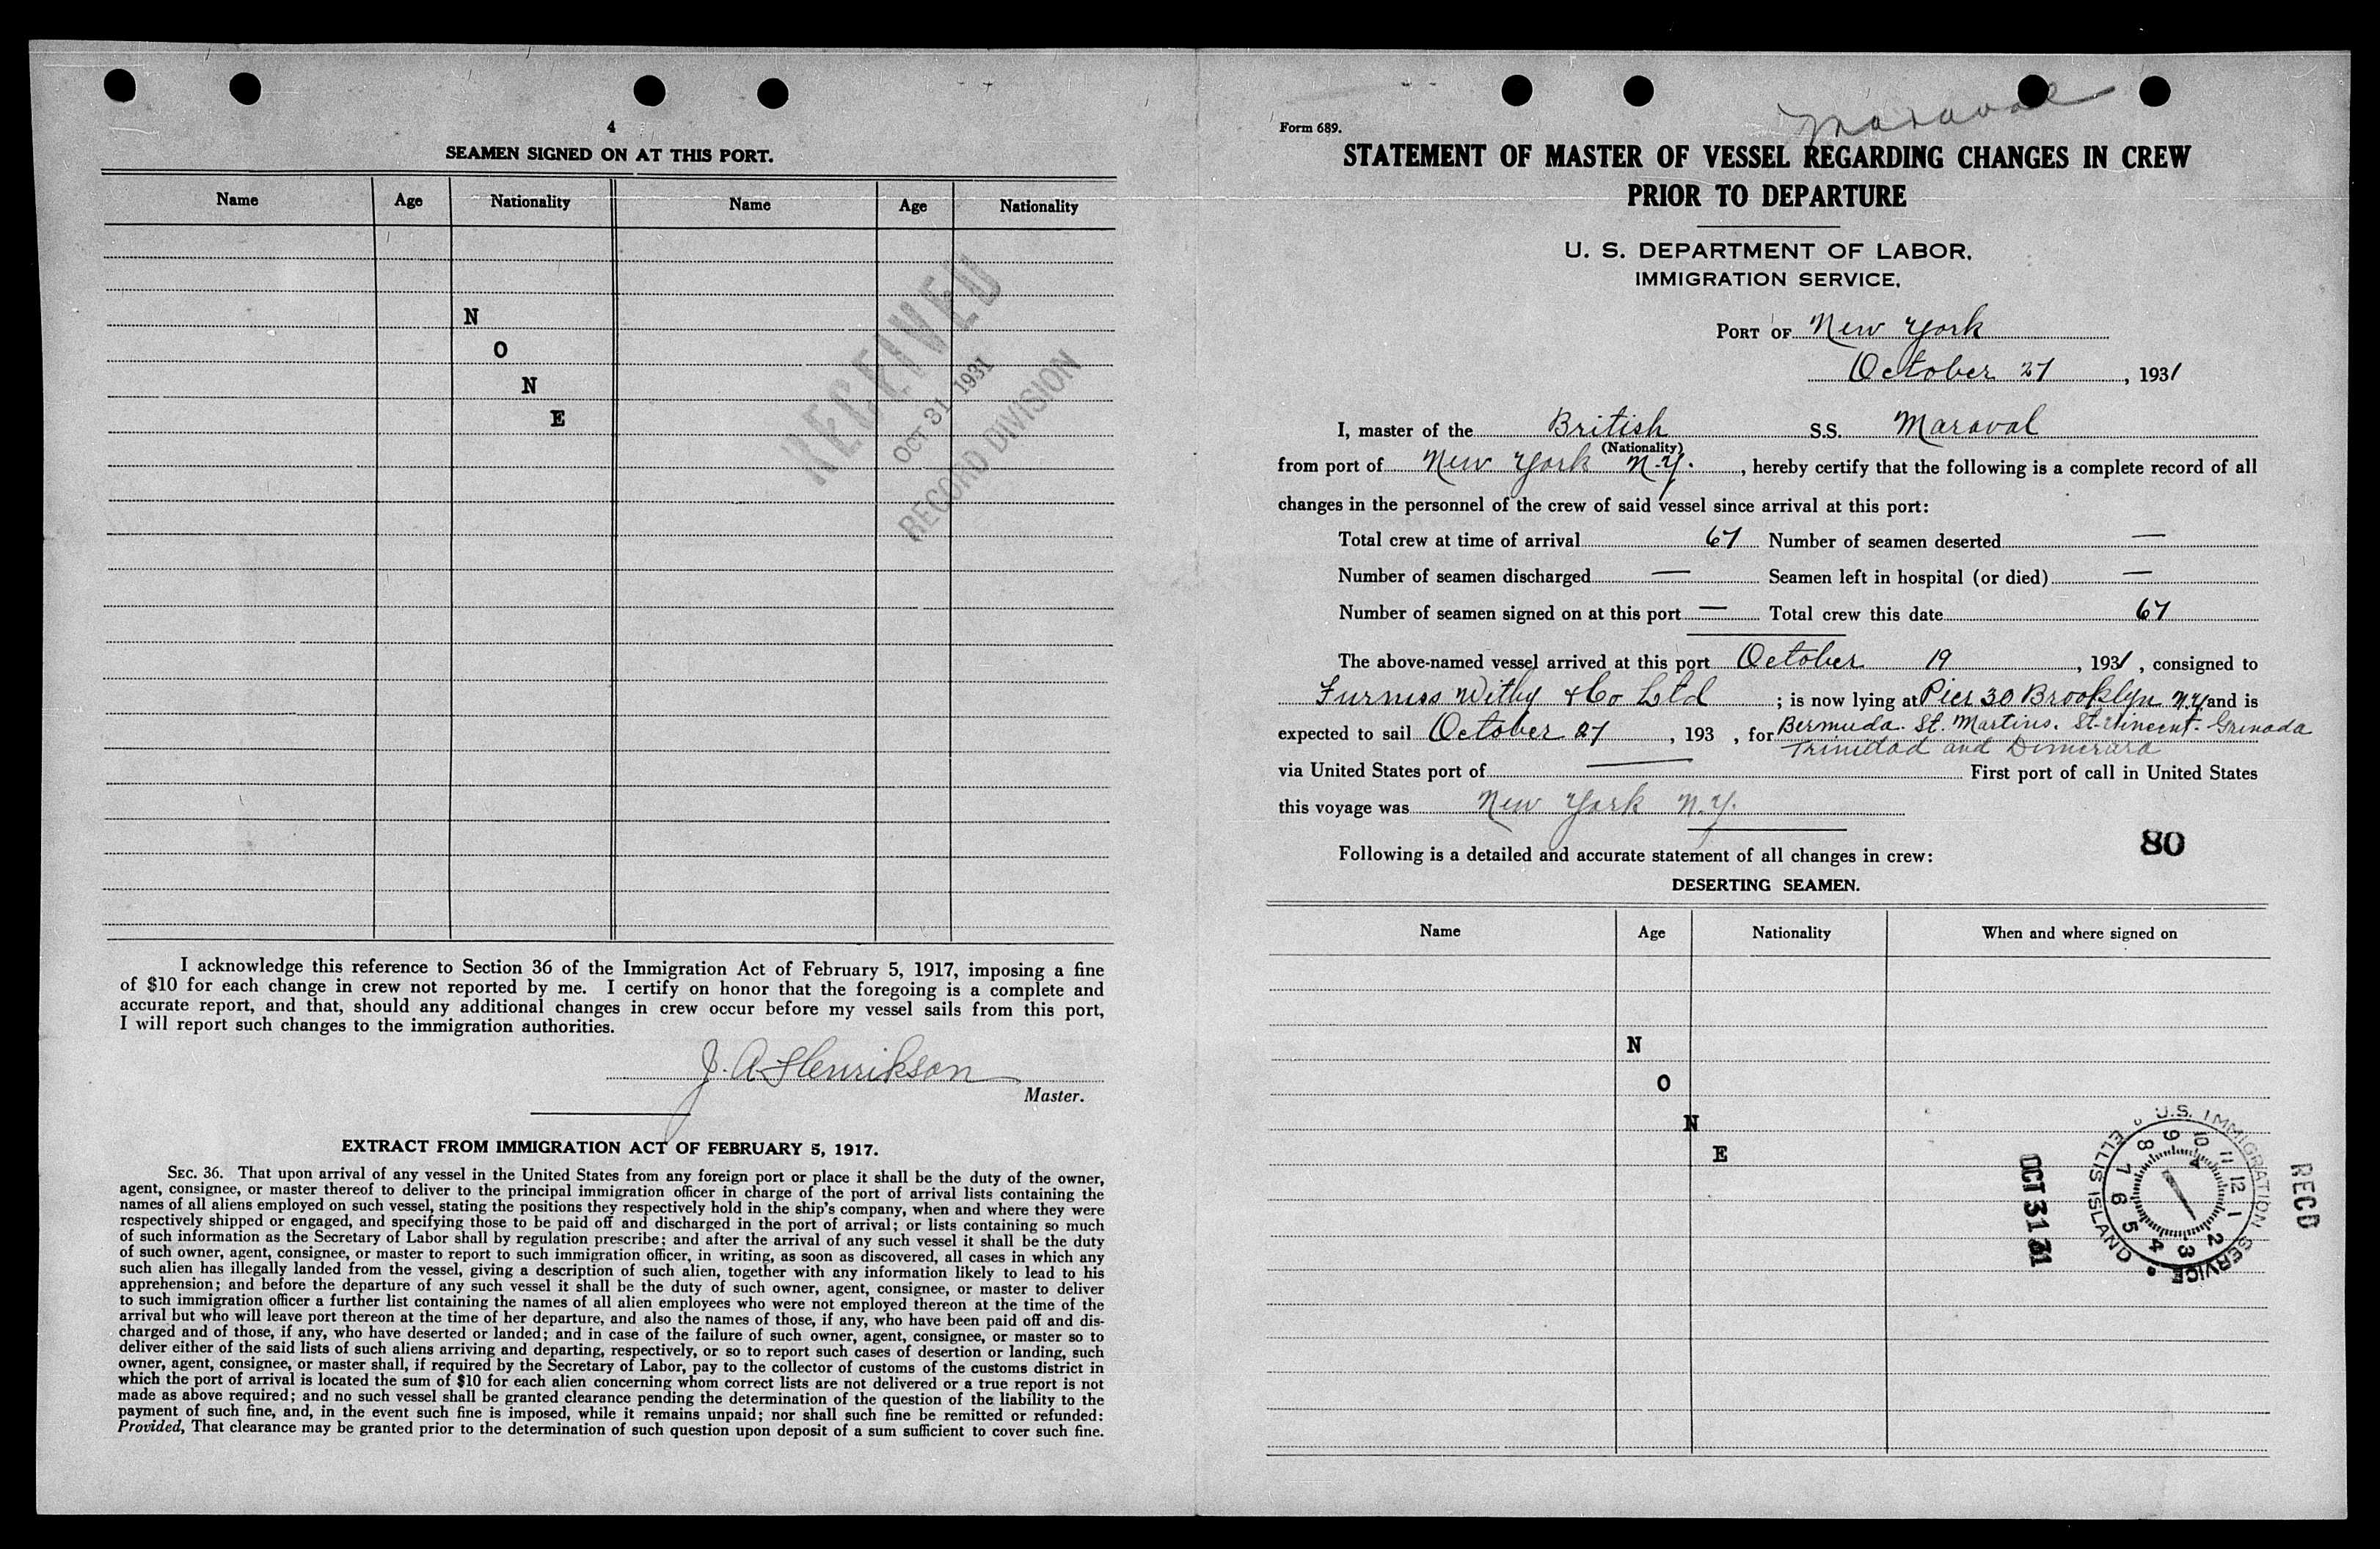 4
SEAMEN SIGNED ON AT THIS PORT.
Name Age Nationality Name Age Nationality
N
O
N
E
RECEIVED
OCT 31 1931
RECORD DIVISION
I acknowledge this reference to Section 36 of the Immigration Act of February 5, 1917, imposing a fine
of $10 for each change in crew not reported by me. I certify on honor that the foregoing is a complete and
accurate report, and that, should any additional changes in crew occur before my vessel sails from this port,
I will report such changes to the immigration authorities.
J. A. Henrikson
Master.
EXTRACT FROM IMMIGRATION ACT OF FEBRUARY 5, 1917.
SEC. 36. That upon arrival of any vessel in the United States from any foreign port or place it shall be the duty of the owner,
agent, consignee, or master thereof to deliver to the principal immigration officer in charge of the port of arrival lists containing the
names of all aliens employed on such vessel, stating the positions they respectively hold in the ship's company, when and where they were
respectively shipped or engaged, and specifying those to be paid off and discharged in the port of arrival; or lists containing so much
of such information as the Secretary of Labor shall by regulation prescribe; and after the arrival of any such vessel it shall be the duty
of such owner, agent, consignee, or master to report to such immigration officer, in writing, as soon as discovered, all cases in which any
such alien has illegally landed from the vessel, giving a description of such alien, together with any information likely to lead to his
apprehension; and before the departure of any such vessel it shall be the duty of such owner, agent, consignee, or master to deliver
to such immigration officer a further list containing the names of all alien employees who were not employed thereon at the time of the
arrival but who will leave port thereon at the time of her departure, and also the names of those, if any, who have been paid off and dis-
charged and of those, if any, who have deserted or landed; and in case of the failure of such owner, agent, consignee, or master so to
deliver either of the said lists of such aliens arriving and departing, respectively, or so to report such cases of desertion or landing, such
owner, agent, consignee, or master shall, if required by the Secretary of Labor, pay to the collector of customs of the customs district in
which the port of arrival is located the sum of $10 for each alien concerning whom correct lists are not delivered or a true report is not
made as above required; and no such vessel shall be granted clearance pending the determination of the question of the liability to the
payment of such fine, and, in the event such fine is imposed, while it remains unpaid; nor shall such fine be remitted or refunded:
Provided, That clearance may be granted prior to the determination of such question upon deposit of a sum sufficient to cover such fine.
Maraval
Form 689.
STATEMENT OF MASTER OF VESSEL REGARDING CHANGES IN CREW
PRIOR TO DEPARTURE
U. S. DEPARTMENT OF LABOR,
IMMIGRATION SERVICE,
PORT OF New York
October 27, 1931
I, master of the British S.S. Maraval
(Nationality)
from port of New York N.Y., hereby certify that the following is a complete record of all
changes in the personnel of the crew of said vessel since arrival at this port:
Total crew at time of arrival 67 Number of seamen deserted —
Number of seamen discharged — Seamen left in hospital (or died) —
Number of seamen signed on at this port — Total crew this date 67
The above-named vessel arrived at this port October 19, 1931, consigned to
Furness Withy & Co Ltd; is now lying at Pier 30 Brooklyn N.Y. and is
expected to sail October 27, 193 , for Bermuda. St. Martins. St. Vincent. Grenada
Trinidad and Demerara
via United States port of — First port of call in United States
this voyage was New York N.Y.
80
Following is a detailed and accurate statement of all changes in crew:
DESERTING SEAMEN.
Name Age Nationality When and where signed on
N
O
N
E
OCT 31 31
U.S. IMMIGRATION SERVICE
ELLIS ISLAND
10 11 12 1 2 3 4 5 6 7 8 9
RECD